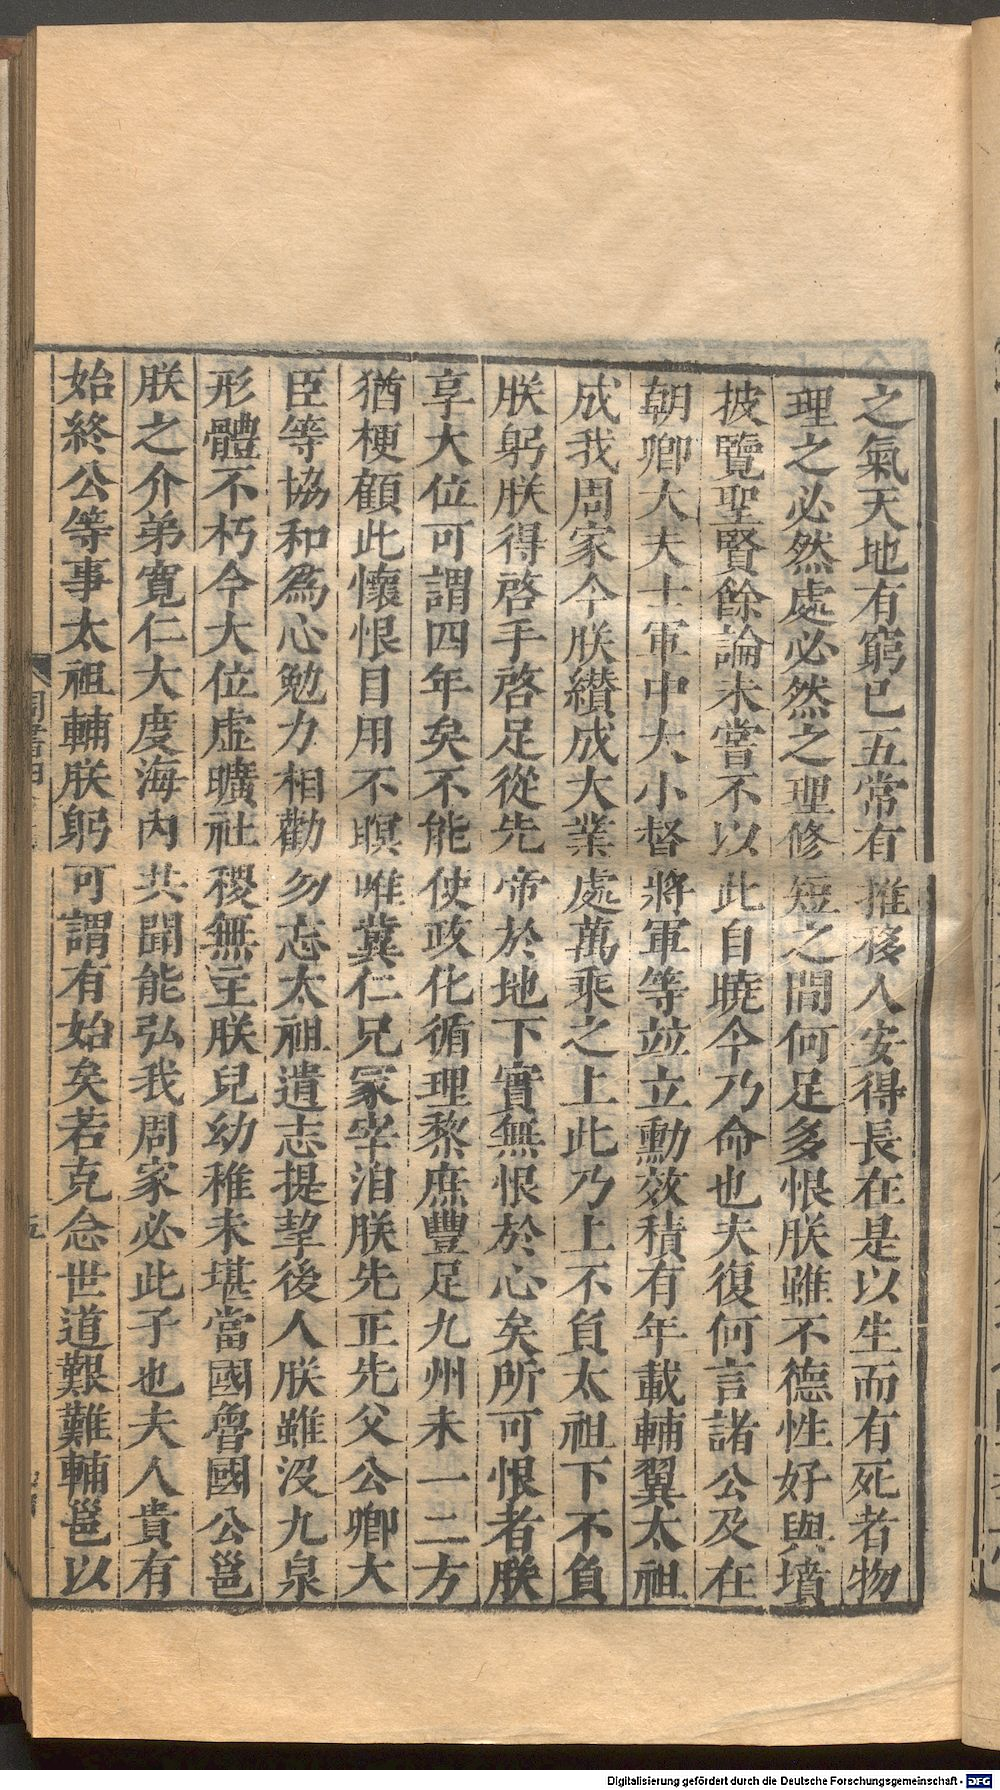 之氣天地有窮已五常有推移人安得長在是以生而有死者物
理之必然處必然之理修短之間何足多恨朕雖不德性好與墳
披覽聖賢餘論未嘗不以此自曉今乃命也夫復何言諸公及在
朝卿大夫士軍中大小督將軍等竝立勳效積有年載輔翼太祖
成我周家今朕纘成大業處萬乘之上此乃上不負太祖下不負
朕躬朕得啓手啓足從先帝於地下實無恨於心矣所可恨者朕
享大位可謂四年矣不能使政化循理黎庶豐足九州未一二方
猶梗顧此懷恨目用不瞑唯冀仁兄冢宰洎朕先正先父公卿大
臣等協和為心勉力相勸勿忘太祖遺志提挈後人朕雖沒九泉
形體不朽今大位虛曠社稷無主朕兒幼稚未堪當國魯國公邕
朕之介弟寬仁大度海內共聞能弘我周家必此子也夫人貴有
始終公等事太祖輔朕躬可謂有始矣若克念世道艱難輔邕以
周書四
五
Digitalisierung gefördert durch die Deutsche Forschungsgemeinschaft - DFG